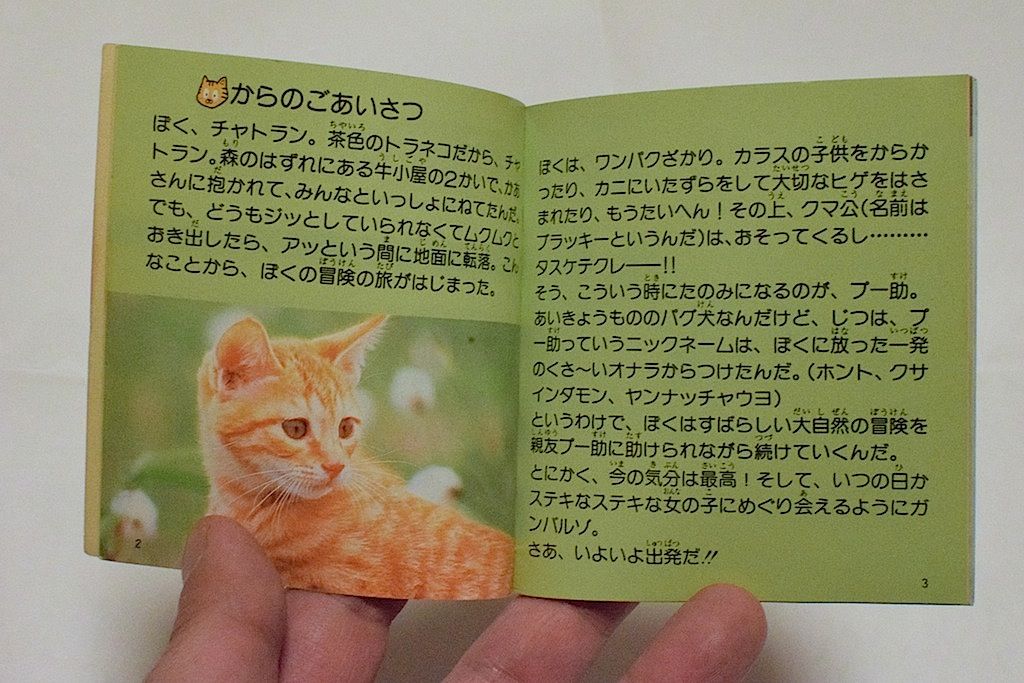 からのごあいさつ
ぼく、チャトラン。茶色のトラネコだから、チャ
トラン。森のはずれにある牛小屋の2かいで、かあ
さんに抱かれて、みんなといっしょにねてたんだ。
でも、どうもジッとしていられなくてムクムクと
おき出したら、アッという間に地面に転落。こん
なことから、ぼくの冒険の旅がはじまった。
2
ぼくは、ワンパクざかり。カラスの子供をからか
ったり、カニにいたずらをして大切なヒゲをはさ
まれたり、もうたいへん！その上、クマ公（名前は
ブラッキーというんだ）は、おそってくるし………
タスケテクレ――!!
そう、こういう時にたのみになるのが、プー助。
あいきょうもののパグ犬なんだけど、じつは、プ
ー助っていうニックネームは、ぼくに放った一発
のくさ〜いオナラからつけたんだ。（ホント、クサ
インダモン、ヤンナッチャウヨ）
というわけで、ぼくはすばらしい大自然の冒険を
親友プー助に助けられながら続けていくんだ。
とにかく、今の気分は最高！そして、いつの日か
ステキなステキな女の子にめぐり会えるようにガ
ンバルゾ。
さあ、いよいよ出発だ!!
3